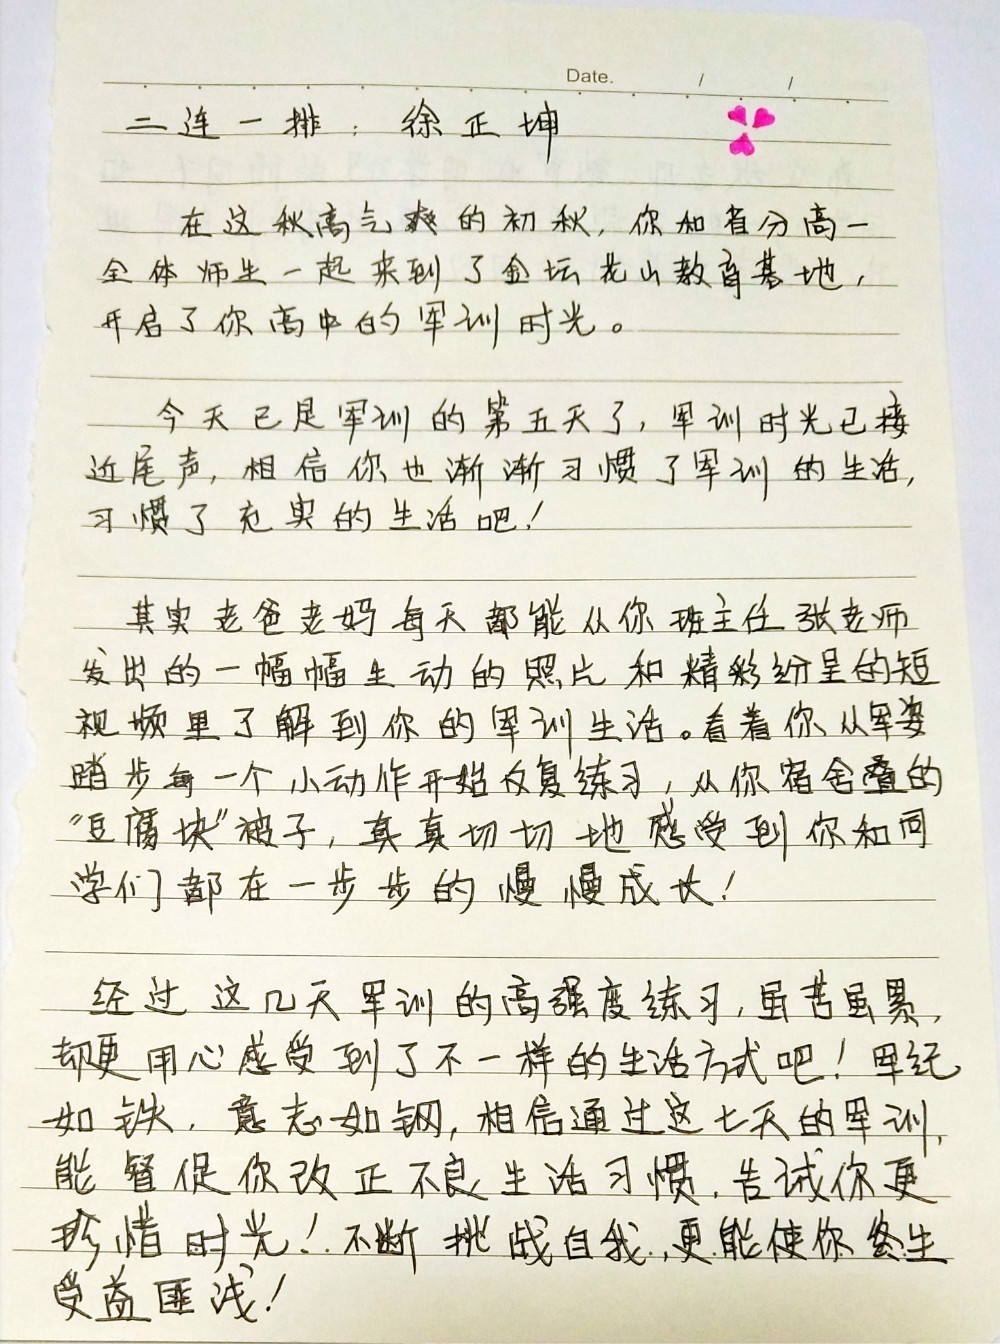 Date. / /
二连一排：徐正坤
在这秋高气爽的初秋，你和省分高一
全体师生一起来到了金坛茏山教育基地，
开启了你高中的军训时光。
今天已是军训的第五天了，军训时光已接
近尾声，相信你也渐渐习惯了军训的生活，
习惯了充实的生活吧！
其实老爸老妈每天都能从你班主任张老师
发出的一幅幅生动的照片和精彩纷呈的短
视频里了解到你的军训生活。看着你从军姿
踏步每一个小动作开始反复练习，从你宿舍叠的
“豆腐块”被子，真真切切地感受到你和同
学们都在一步步的慢慢成长！
经过这几天军训的高强度练习，虽苦虽累，
却更用心感受到了不一样的生活方式吧！军纪
如铁，意志如钢，相信通过这七天的军训，
能督促你改正不良生活习惯，告诫你更
珍惜时光！不断挑战自我，更能使你终生
受益匪浅！